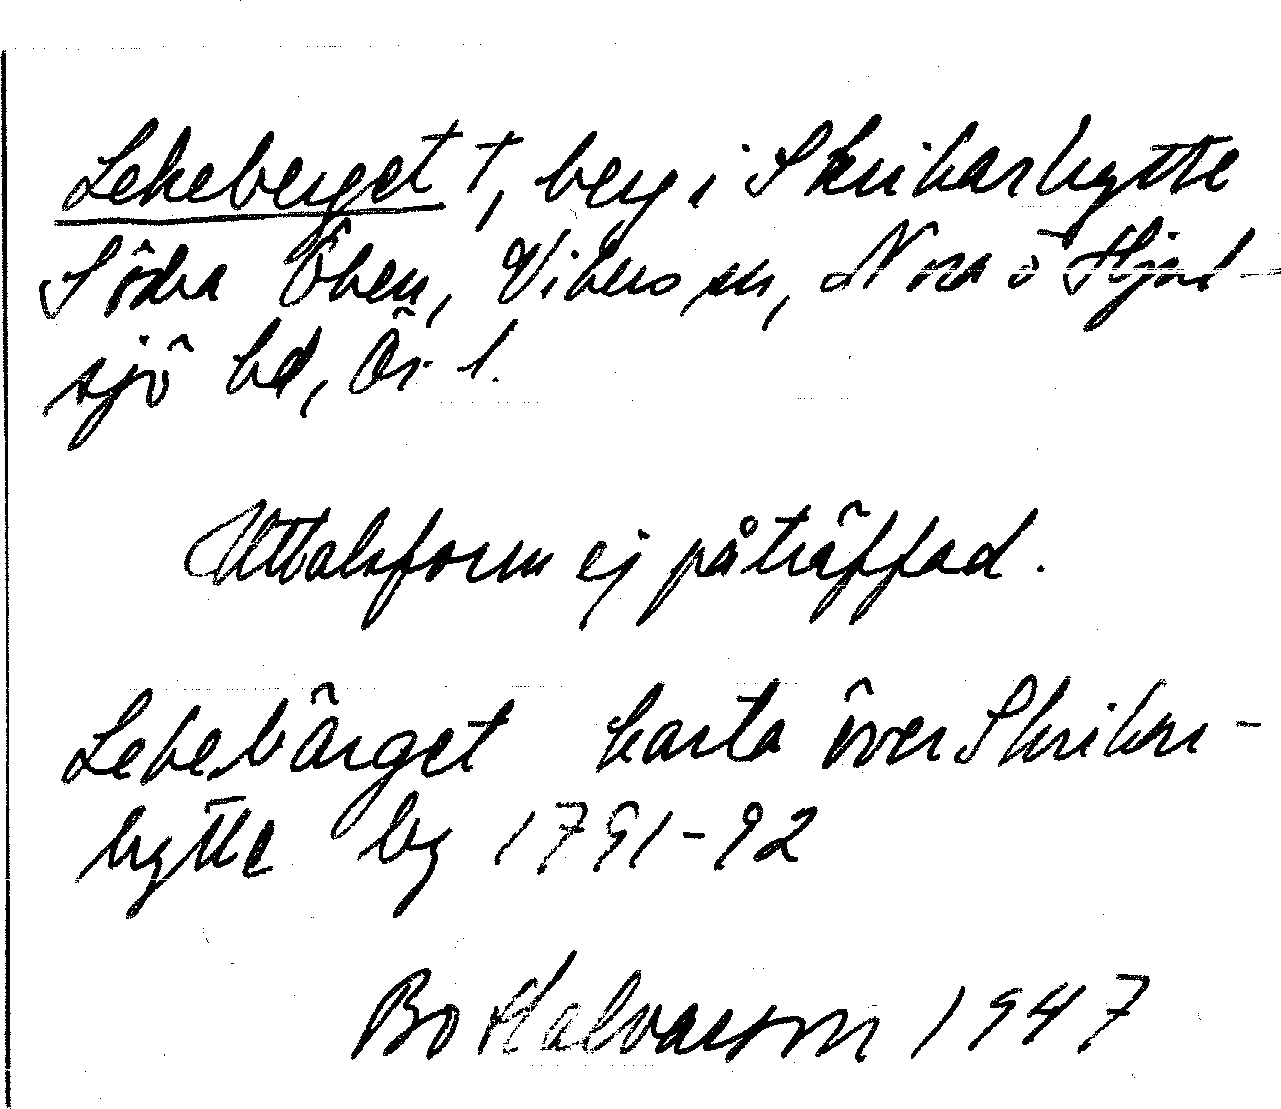 Lekeberget †, berg i Skrikarhytte
Södra Öken, Vikers sn, Nora o Hjul-
sjö bd, Ör. l.
Uttalsform ej påträffad.
Lekebärget karta över Skriker-
hytte by 1791-92
Bo Halvarson 1947